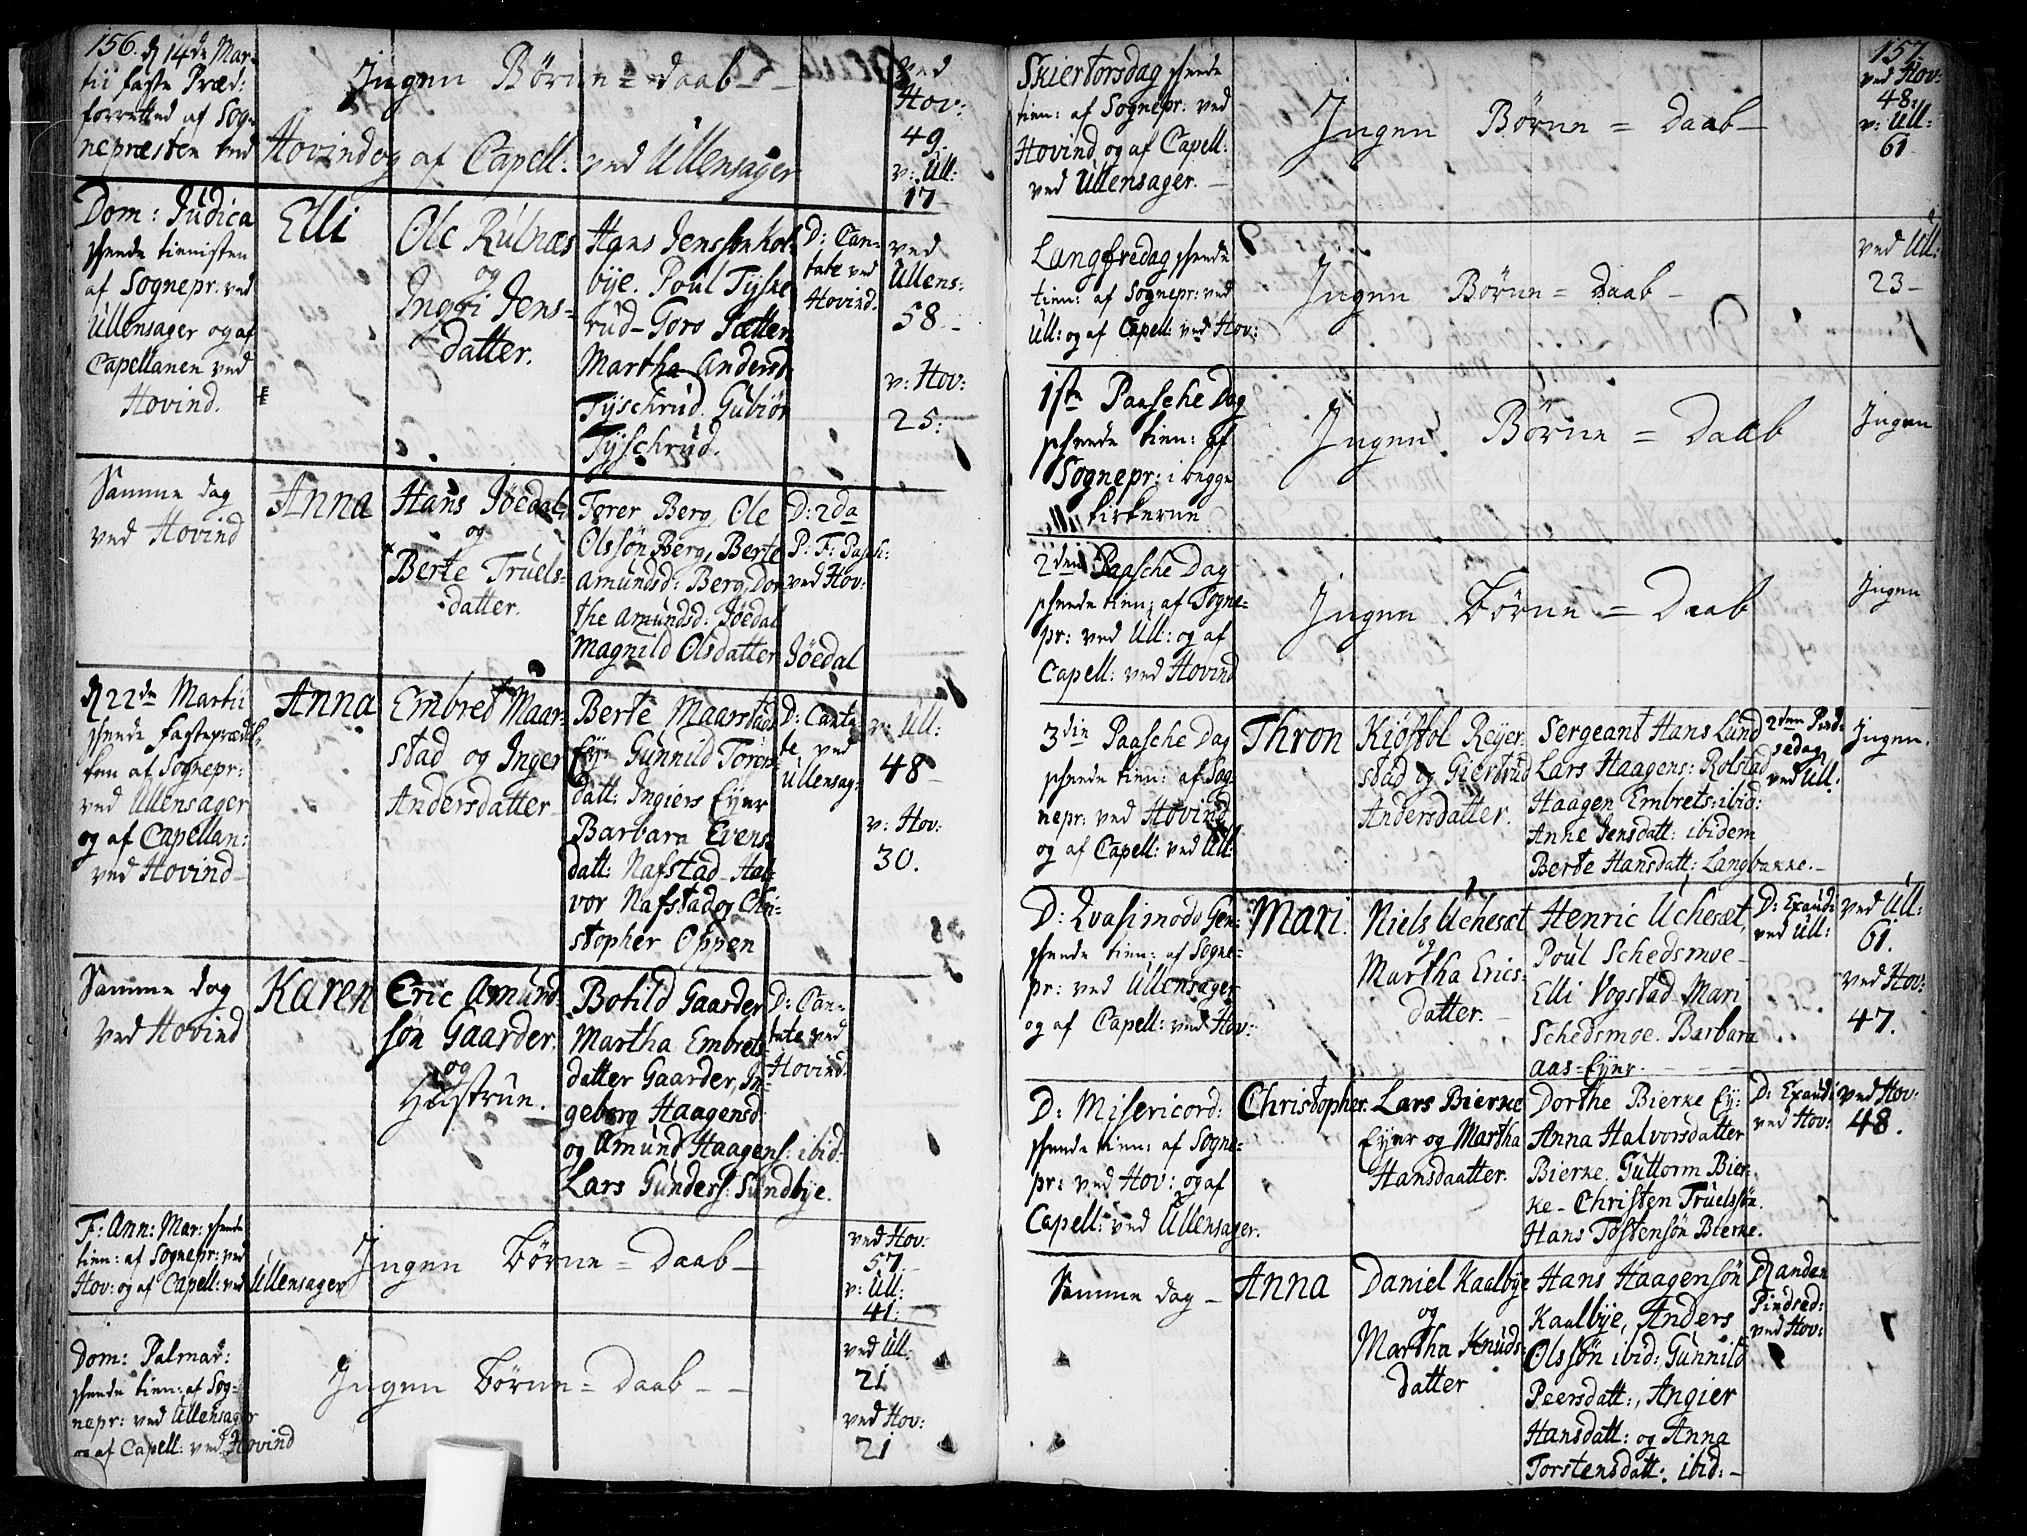 156.
d 14de Mar-
tii faste Præd:
forretted af Sog-
nepræsten ved Hovind og af Capell: ved Ullensager
Ingen Børne = daab -
ved
Hov:
49.
v: Ull:
17
Dom: Judica
skeede tienisten
af Sognepr: ved
Ullensager og af
Capellanen ved
Hovind.
Elli
Ole
og
Ingri Jens-
datter.
Hans Jenssøn Kol-
bye. Poul Tyske-
rud - Goro Sætter
Martha Andersd:
Tyschrud. Gubiør
Tyschrud.
D: Can-
tate ved
Hovind.
ved
Ullens:
58 -
v: Hov:
25:
Samme dag
ved Hovind
Anna
Hans Jöedal
og
Berte Truels-
datter.
Torer Berg, Ole
Olssøn Berg, Berte
Amundsd: Berg, Dor-
the Amundsd: Jöedal
Magnild Olsdatter Jöedal
D: 2da
P: F: Pasch:
ved Hov:
d 22de Martii
skeede fasteprædik-
ken af Sognepr:
ved Ullensager
og af Capellan:
ved Hovind -
Anna
Embret Maar-
stad og Inger
Andersdatter -
Berte Maarstad
Ey: Gunnild Toren-
datt: Ingiers Eyer
Barbara Evens
datt: Nafstad - Hal-
vor Nafstad og Chri-
stopher Oppen
D: Canta-
te ved
Ullensag:
v: Ull:
48 -
v: Hov:
30.
Samme dag
ved Hovind
Karen
Eric Amund-
søn Gaarder.
og
Hustrun.
Botild Gaarder
Martha Embrets-
datter Gaarder, In-
geborg Haagensd:
og Amund Haagens: ibid.
Lars Gunders: Sundbye.
D: Can-
tate ved
Hovind
F: Ann: Mar: skeede
tien: af Sognepr: ved
Hov: og af Capell: ved Ullensager
Ingen Børne = Daab -
ved Hov:
57
v: Ull:
41:
Dom: Palmar:
skeede tien: af Sog-
nepr: ved Ullensager
og af Capell: ved Hovind
Ingen Børne = Daab - -
ved Ull:
21
ved Hov:
21
157.
Skiertorsdag skeede
tien: af Sognepr: ved
Hovind og af Capell:
ved Ullensager. -
Ingen Børne = Daab -
ved Hov:
48:
v: Ull:
61
Langfredag skeede
tien: af Sognepr: ved
Ull: og af Capell: ved Hov:
Ingen Børne = Daab -
ved Ull:
23 -
1ste Paasche Dag
skeede tien: af
Sognepr: i begge
kirkerne
Ingen Børne = Daab
Ingen
2den Paasche Dag
skeede tien: af Sogne-
pr: ved Ull: og af
Capell: ved Hovind
Ingen Børne = Daab
Ingen
3die Paasche Dag
skeede tien: af Sog-
nepr: ved Hovind
og af Capell: ved Ull:
Thron
Kiøstol Reyer-
stad og Giertrud
Andersdatter.
Sergeant Hans Lund
Lars Haagens: Rolstad
Haagen Embrets: ibid:
Anne Jensdatt: ibidem
Berte Hansdatt: Langbakke. -
2den Pind-
sedag
ved Ull:
Ingen.
D: Qvasimodo Gen:
skeede tien: af Sogne-
pr: ved Ullensager
og af Capell: ved Hov:
Mari.
Niels Uchesæt
og
Martha Erics-
datter. -
Henric Uchesæt,
Poul Schedsmoe -
Elli Vogstad - Mari
Schedsmoe. Barbara
aas = Eyer. - - -
D: Exaudi
ved Ull:
ved Ull:
61.
ved Hov:
47.
D: Misericord:
skeede tien: af Sogne-
pr: ved Hov: og af
Capell: ved Ullensager.
Christopher.
Lars Bierke
Eyer og Martha
Hansdaatter.
Dorthe Bierke Ey:
Anna Halvorsdatter
Bierke. Guttorm Bier-
ke - Christen Truelssøn.
Hans Tostensøn Bierke.
D: Exaudi
ved Hov:
ved Hov:
48.
Samme dag -
Anna
Daniel Kaalbye
og
Martha Knuds-
datter
Hans Haagensøn
Kaalbye, Anders
Olssøn ibid:, Gunnild
Peersdatt:, Angier
Hansdatt: og Anna
Torstensdatt: ibid: -
D anden
Pindsed:
ved Hov: